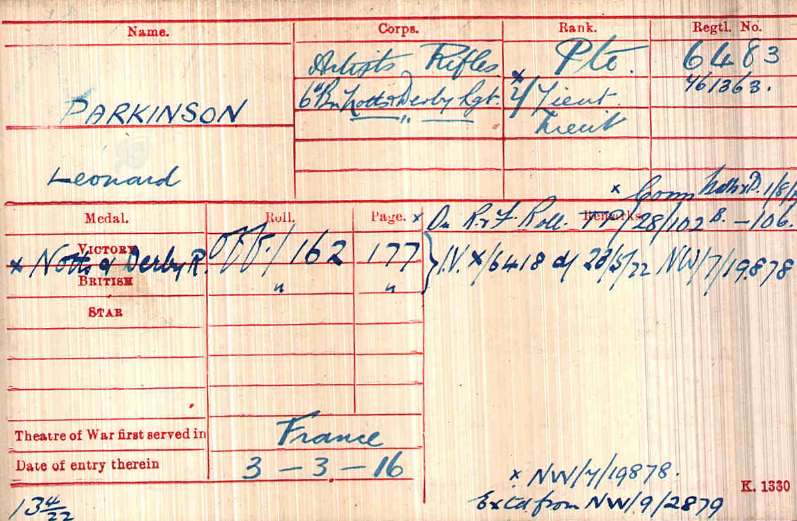 Name. Corps. Rank. Regtl. No.
Artists Rifles Pte. 6483
6th Bn Notts & Derby Rgt. x 2/Lieut. 761363.
PARKINSON " Lieut
Leonard
x Comm Notts & D. 1/8/
Medal. Roll. Page. Remarks
x On R. & F. Roll. TP/28/102 B. - 106.
VICTORY
x Notts & Derby R. Off/162 177 I.V. x/6418 d/ 23/5/22 NW/7/19878
BRITISH " "
STAR
Theatre of War first served in France
Date of entry therein 3 - 3 - 16
x NW/7/19878.
K. 1330
134/22 Extd from NW/9/2879